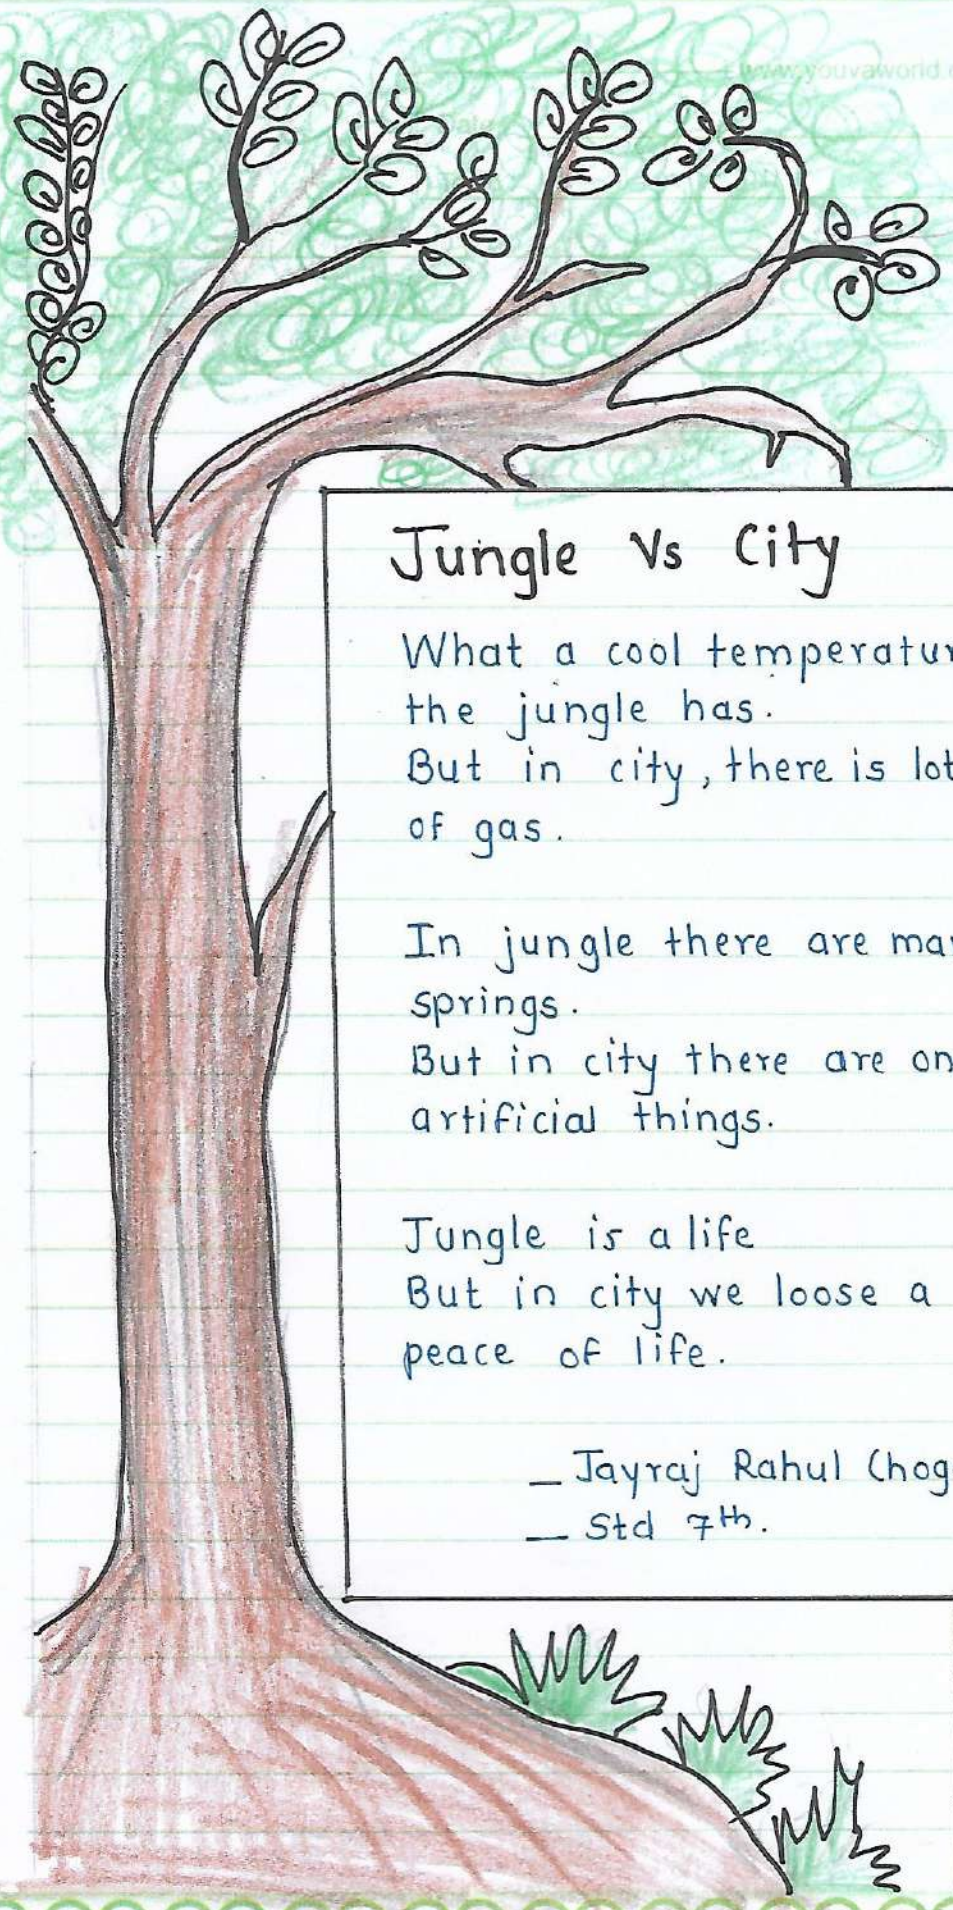 www.youvaworld.c
Jungle Vs City
What a cool temperatur
the jungle has.
But in city, there is lot
of gas.
In jungle there are ma
springs.
But in city there are on
artificial things.
Jungle is a life
But in city we loose a
peace of life.
_ Jayraj Rahul Chog
_ Std 7th.